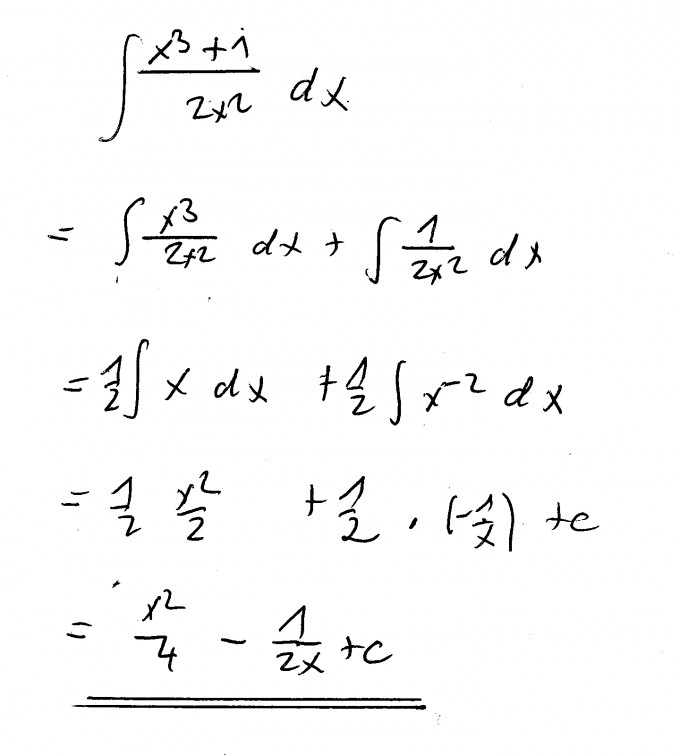 ∫ (x³+1)/(2x²) dx
= ∫ x³/(2x²) dx + ∫ 1/(2x²) dx
= 1/2 ∫ x dx + 1/2 ∫ x⁻² dx
= 1/2 x²/2 + 1/2 · (-1/x) + c
= x²/4 - 1/(2x) + c